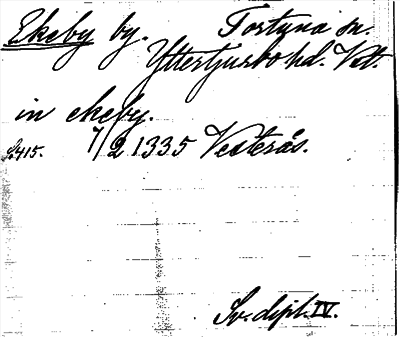 Ekeby by. Tortuna sn.
Yttertjurbo hd. Vstm.
in ekeby.
S. 415. 7/2 1335 Västerås.
Sv. dipl. IV.